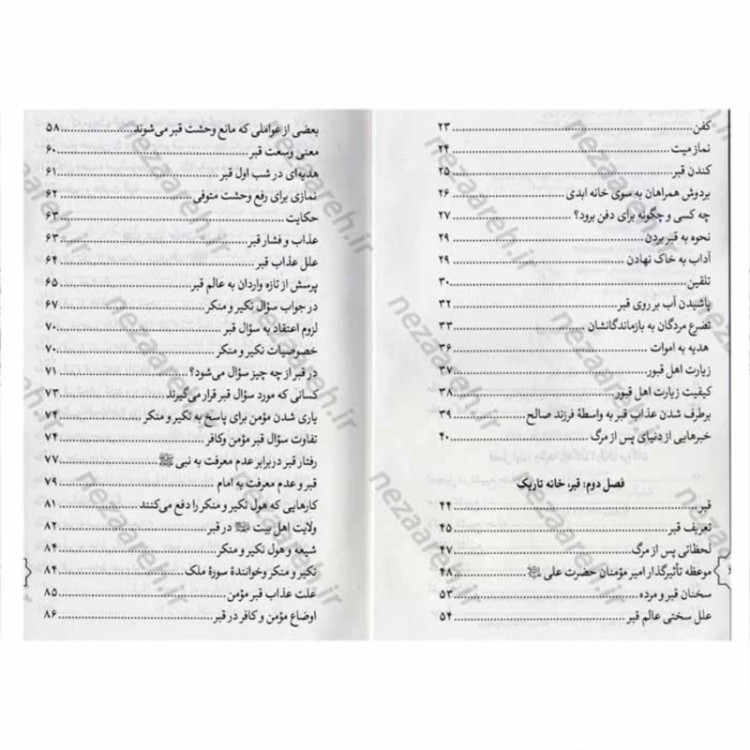 کفن ..... ۲۳
نماز میت ..... ۲۴
کندن قبر ..... ۲۵
بردوش همراهان به سوی خانه ابدی ..... ۲۶
چه کسی و چگونه برای دفن برود؟ ..... ۲۷
نحوه به قبر بردن ..... ۲۹
آداب به خاک نهادن ..... ۲۹
تلقین ..... ۳۰
پاشیدن آب بر روی قبر ..... ۳۲
تضرع مردگان به بازماندگانشان ..... ۳۳
هدیه به اموات ..... ۳۶
زیارت اهل قبور ..... ۳۷
کیفیت زیارت اهل قبور ..... ۳۸
برطرف شدن عذاب قبر به واسطهٔ فرزند صالح ..... ۳۹
خبرهایی از دنیای پس از مرگ ..... ۴۰
فصل دوم: قبر، خانه تاریک
قبر ..... ۴۴
تعریف قبر ..... ۴۵
لحظاتی پس از مرگ ..... ۴۷
موعظه تأثیرگذار امیر مؤمنان حضرت علی ..... ۴۸
سخنان قبر و مرده ..... ۵۳
علل سختی عالم قبر ..... ۵۴
بعضی از عواملی که مانع وحشت قبر می‌شوند ..... ۵۸
معنی وسعت قبر ..... ۶۰
هدیه‌ای در شب اول قبر ..... ۶۱
نمازی برای رفع وحشت متوفی ..... ۶۲
حکایت ..... ۶۳
عذاب و فشار قبر ..... ۶۳
علل عذاب قبر ..... ۶۴
پرسش از تازه واردان به عالم قبر ..... ۶۵
در جواب سؤال نکیر و منکر ..... ۶۷
لزوم اعتقاد به سؤال قبر ..... ۷۰
خصوصیات نکیر و منکر ..... ۷۰
در قبر از چه چیز سؤال می‌شود؟ ..... ۷۱
کسانی که مورد سؤال قبر قرار می‌گیرند ..... ۷۳
یاری شدن مؤمن برای پاسخ به نکیر و منکر ..... ۷۴
تفاوت سؤال قبر مؤمن وکافر ..... ۷۴
رفتار قبر دربرابر عدم معرفت به نبی ﷺ ..... ۷۷
قبر و عدم معرفت به امام ..... ۷۹
کارهایی که هول نکیر و منکر را دفع می‌کنند ..... ۸۱
ولایت اهل بیت در قبر ..... ۸۲
شیعه و هول نکیر و منکر ..... ۸۴
نکیر و منکر وخوانندهٔ سورهٔ ملک ..... ۸۴
علت عذاب قبر مؤمن ..... ۸۵
اوضاع مؤمن و کافر در قبر ..... ۸۶
nezaareh.ir
nezaareh.ir
nezaareh.ir
nezaareh.ir
nezaareh.ir
nezaareh.ir